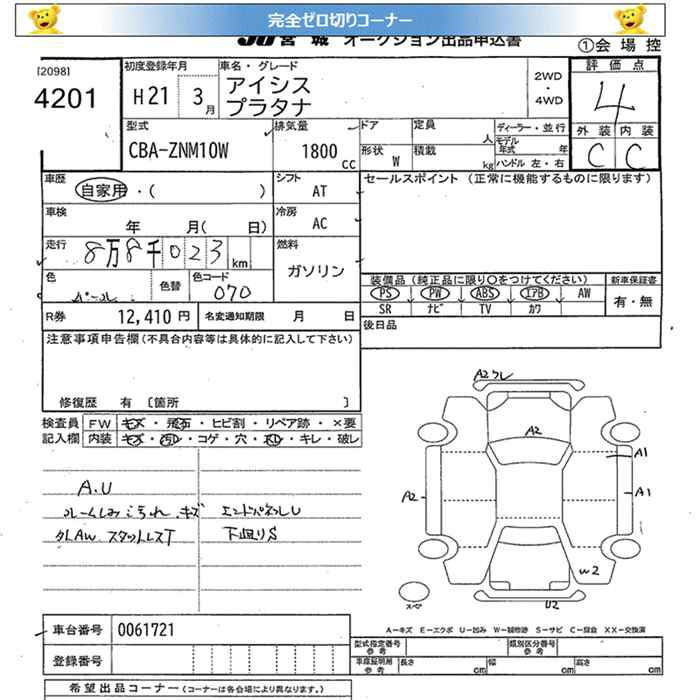 完全ゼロ切りコーナー
JU 宮城 オークション出品申込書
①会場控
[2098]
4201
初度登録年月
H21 3月
車名・グレード
アイシス
プラタナ
2WD
・
4WD
評価点
4
外装 内装
C C
型式
CBA-ZNM10W
排気量
1800 cc
ドア
形状 W
定員 人
積載 kg
ディーラー・並行
モデル年式 年
ハンドル 左・右
車歴
自家用・( )
シフト
AT
セールスポイント (正常に機能するものに限ります)
車検
年 月( 日)
冷房
AC
走行
8万8千023km
燃料
ガソリン
色
パール
色替
色コード
070
装備品(純正品に限り○をつけてください)
新車保証書
PS PW ABS エアB AW
有・無
SR ナビ TV カワ
R券
12,410円
名変通知期限 月 日
後日品
注意事項申告欄(不具合内容等は具体的に記入して下さい)
修復歴 有 [箇所 ]
検査員
記入欄
FW キズ・飛石・ヒビ割・リペア跡・×要
内装 キズ・汚れ・コゲ・穴・ネジ・キレ・破レ
A.U
ルームしみ こげ れ キズ エンドパネルU
外AW スタットレスT 下廻りS
A2クレ
A2
A1
A2
A1
W2
U2
スペア
A-キズ E-エクボ U-凹み W-補修跡 S-サビ C-腐食 XX-交換済
車台番号
0061721
型式指定番号
参考
類別区分番号
参考
登録番号
車庫証明用
参考
長さ cm 幅 cm 高さ cm
希望出品コーナー (コーナーは各会場により異なります。)